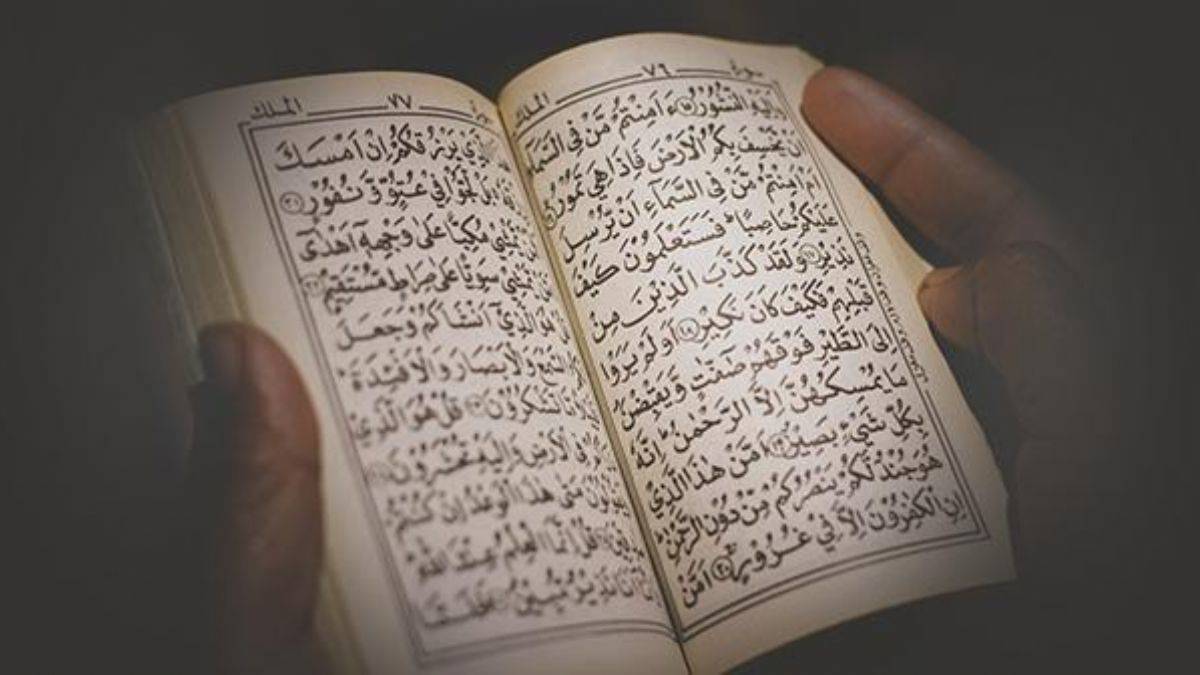 سورة ٧٦ الملك
وَاِلَيْهِ النُّشُوْرُ ۝١٥ ءَاَمِنْتُمْ مَّنْ فِي السَّمَآءِ
اَنْ يَّخْسِفَ بِكُمُ الْاَرْضَ فَاِذَا هِيَ تَمُوْرُ
اَمْ اَمِنْتُمْ مَّنْ فِي السَّمَآءِ اَنْ يُّرْسِلَ
عَلَيْكُمْ حَاصِبًا ؕ فَسَتَعْلَمُوْنَ كَيْفَ
نَذِيْرِ ۝١٧ وَلَقَدْ كَذَّبَ الَّذِيْنَ مِنْ
قَبْلِهِمْ فَكَيْفَ كَانَ نَكِيْرِ ۝١٨ اَوَلَمْ يَرَوْا
اِلَى الطَّيْرِ فَوْقَهُمْ صٰٓفّٰتٍ وَّيَقْبِضْنَ
مَا يُمْسِكُهُنَّ اِلَّا الرَّحْمٰنُ ؕ اِنَّهٗ
بِكُلِّ شَيْءٍۭ بَصِيْرٌ ۝١٩ اَمَّنْ هٰذَا الَّذِيْ
هُوَ جُنْدٌ لَّكُمْ يَنْصُرُكُمْ مِّنْ دُوْنِ الرَّحْمٰنِ
اِنِ الْكٰفِرُوْنَ اِلَّا فِيْ غُرُوْرٍ ۝٢٠ اَمَّنْ
٧٧ الملك
الَّذِيْ يَرْزُقُكُمْ اِنْ اَمْسَكَ
بَلْ لَّجُّوْا فِيْ عُتُوٍّ وَّنُفُوْرٍ ۝٢١
يَّمْشِيْ مُكِبًّا عَلٰى وَجْهِهٖٓ اَهْدٰٓى
يَّمْشِيْ سَوِيًّا عَلٰى صِرَاطٍ مُّسْتَقِيْمٍ ۝٢٢
هُوَ الَّذِيْٓ اَنْشَاَكُمْ وَجَعَلَ
السَّمْعَ وَالْاَبْصَارَ وَالْاَفْئِدَةَ
مَّا تَشْكُرُوْنَ ۝٢٣ قُلْ هُوَ الَّذِيْ
فِي الْاَرْضِ وَاِلَيْهِ تُحْشَرُوْنَ
مَتٰى هٰذَا الْوَعْدُ اِنْ كُنْتُمْ
قُلْ اِنَّمَا الْعِلْمُ عِنْدَ اللّٰهِ
اَنَا نَذِيْرٌ مُّبِيْنٌ ۝ فَلَمَّا